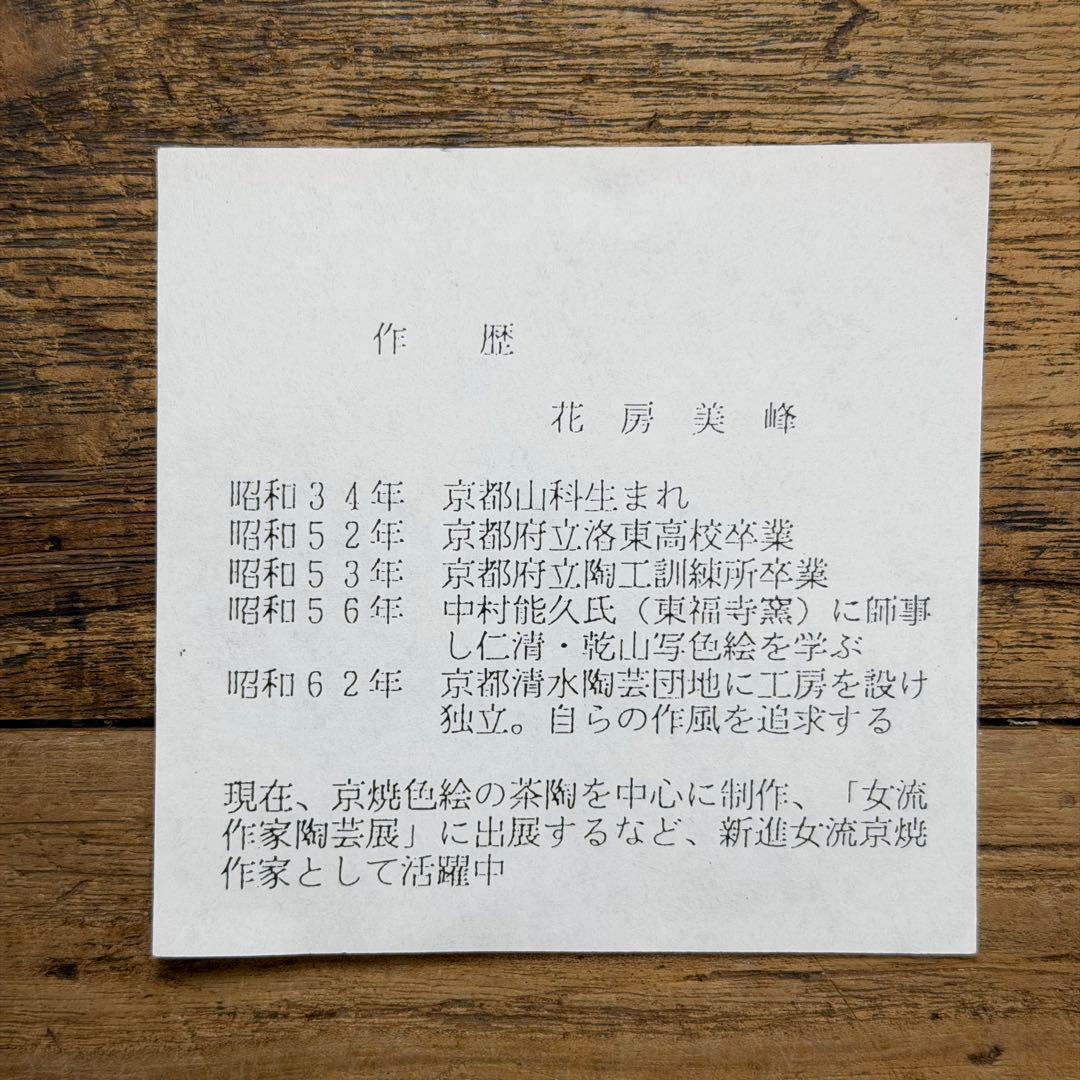 作　歴
花　房　美　峰
昭和３４年　京都山科生まれ
昭和５２年　京都府立洛東高校卒業
昭和５３年　京都府立陶工訓練所卒業
昭和５６年　中村能久氏（東福寺窯）に師事
し仁清・乾山写色絵を学ぶ
昭和６２年　京都清水陶芸団地に工房を設け
独立。自らの作風を追求する
現在、京焼色絵の茶陶を中心に制作、「女流
作家陶芸展」に出展するなど、新進女流京焼
作家として活躍中